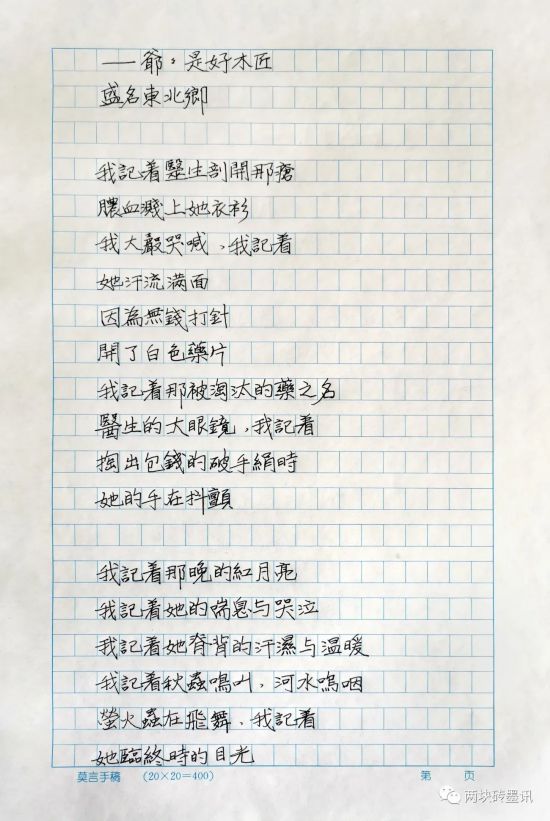 ——爺々是好木匠
盛名東北鄉
我記着醫生剖開那瘡
膿血濺上她衣衫
我大聲哭喊，我記着
她汗流满面
因為無錢打針
開了白色藥片
我記着那被淘汰的藥之名
醫生的大眼鏡，我記着
掏出包錢的破手絹時
她的手在抖顫
我記着那晚的紅月亮
我記着她的喘息与哭泣
我記着她脊背的汗濕与温暖
我記着秋蟲鳴叫，河水嗚咽
螢火蟲在飛舞，我記着
她臨終時的目光
莫言手稿 （20×20=400） 第 页
两块砖墨讯